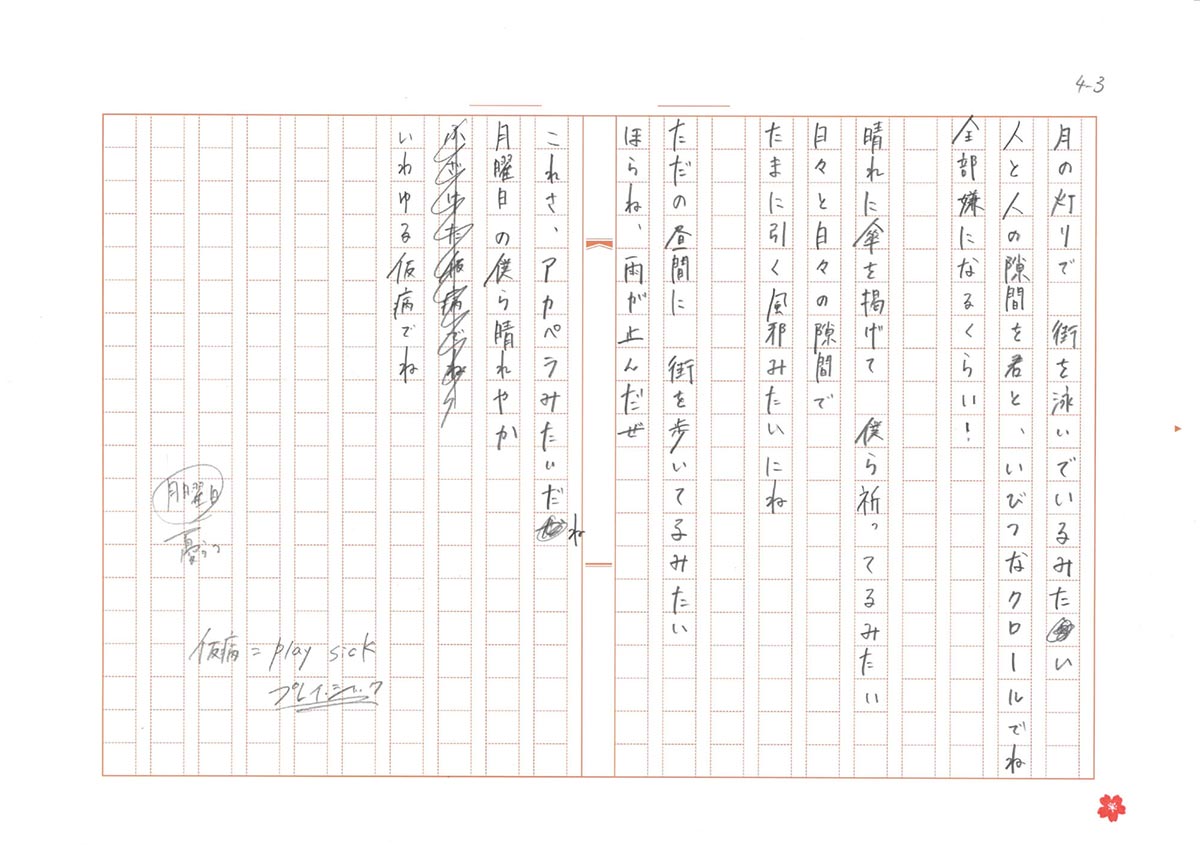 4-3
月の灯りで　街を泳いでいるみたい
人と人の隙間を君と、いびつなクロールでね
全部嫌になるくらい!
晴れに傘を掲げて　僕ら祈ってるみたい
日々と日々の隙間で
たまに引く風邪みたいにね
ただの昼間に　街を歩いてるみたい
ほらね、雨が止んだぜ
これさ、アカペラみたいだね
月曜日の僕ら晴れやか
ふざけた仮病でね
いわゆる仮病でね
月曜日
憂うつ
仮病=play sick
プレイ・シック